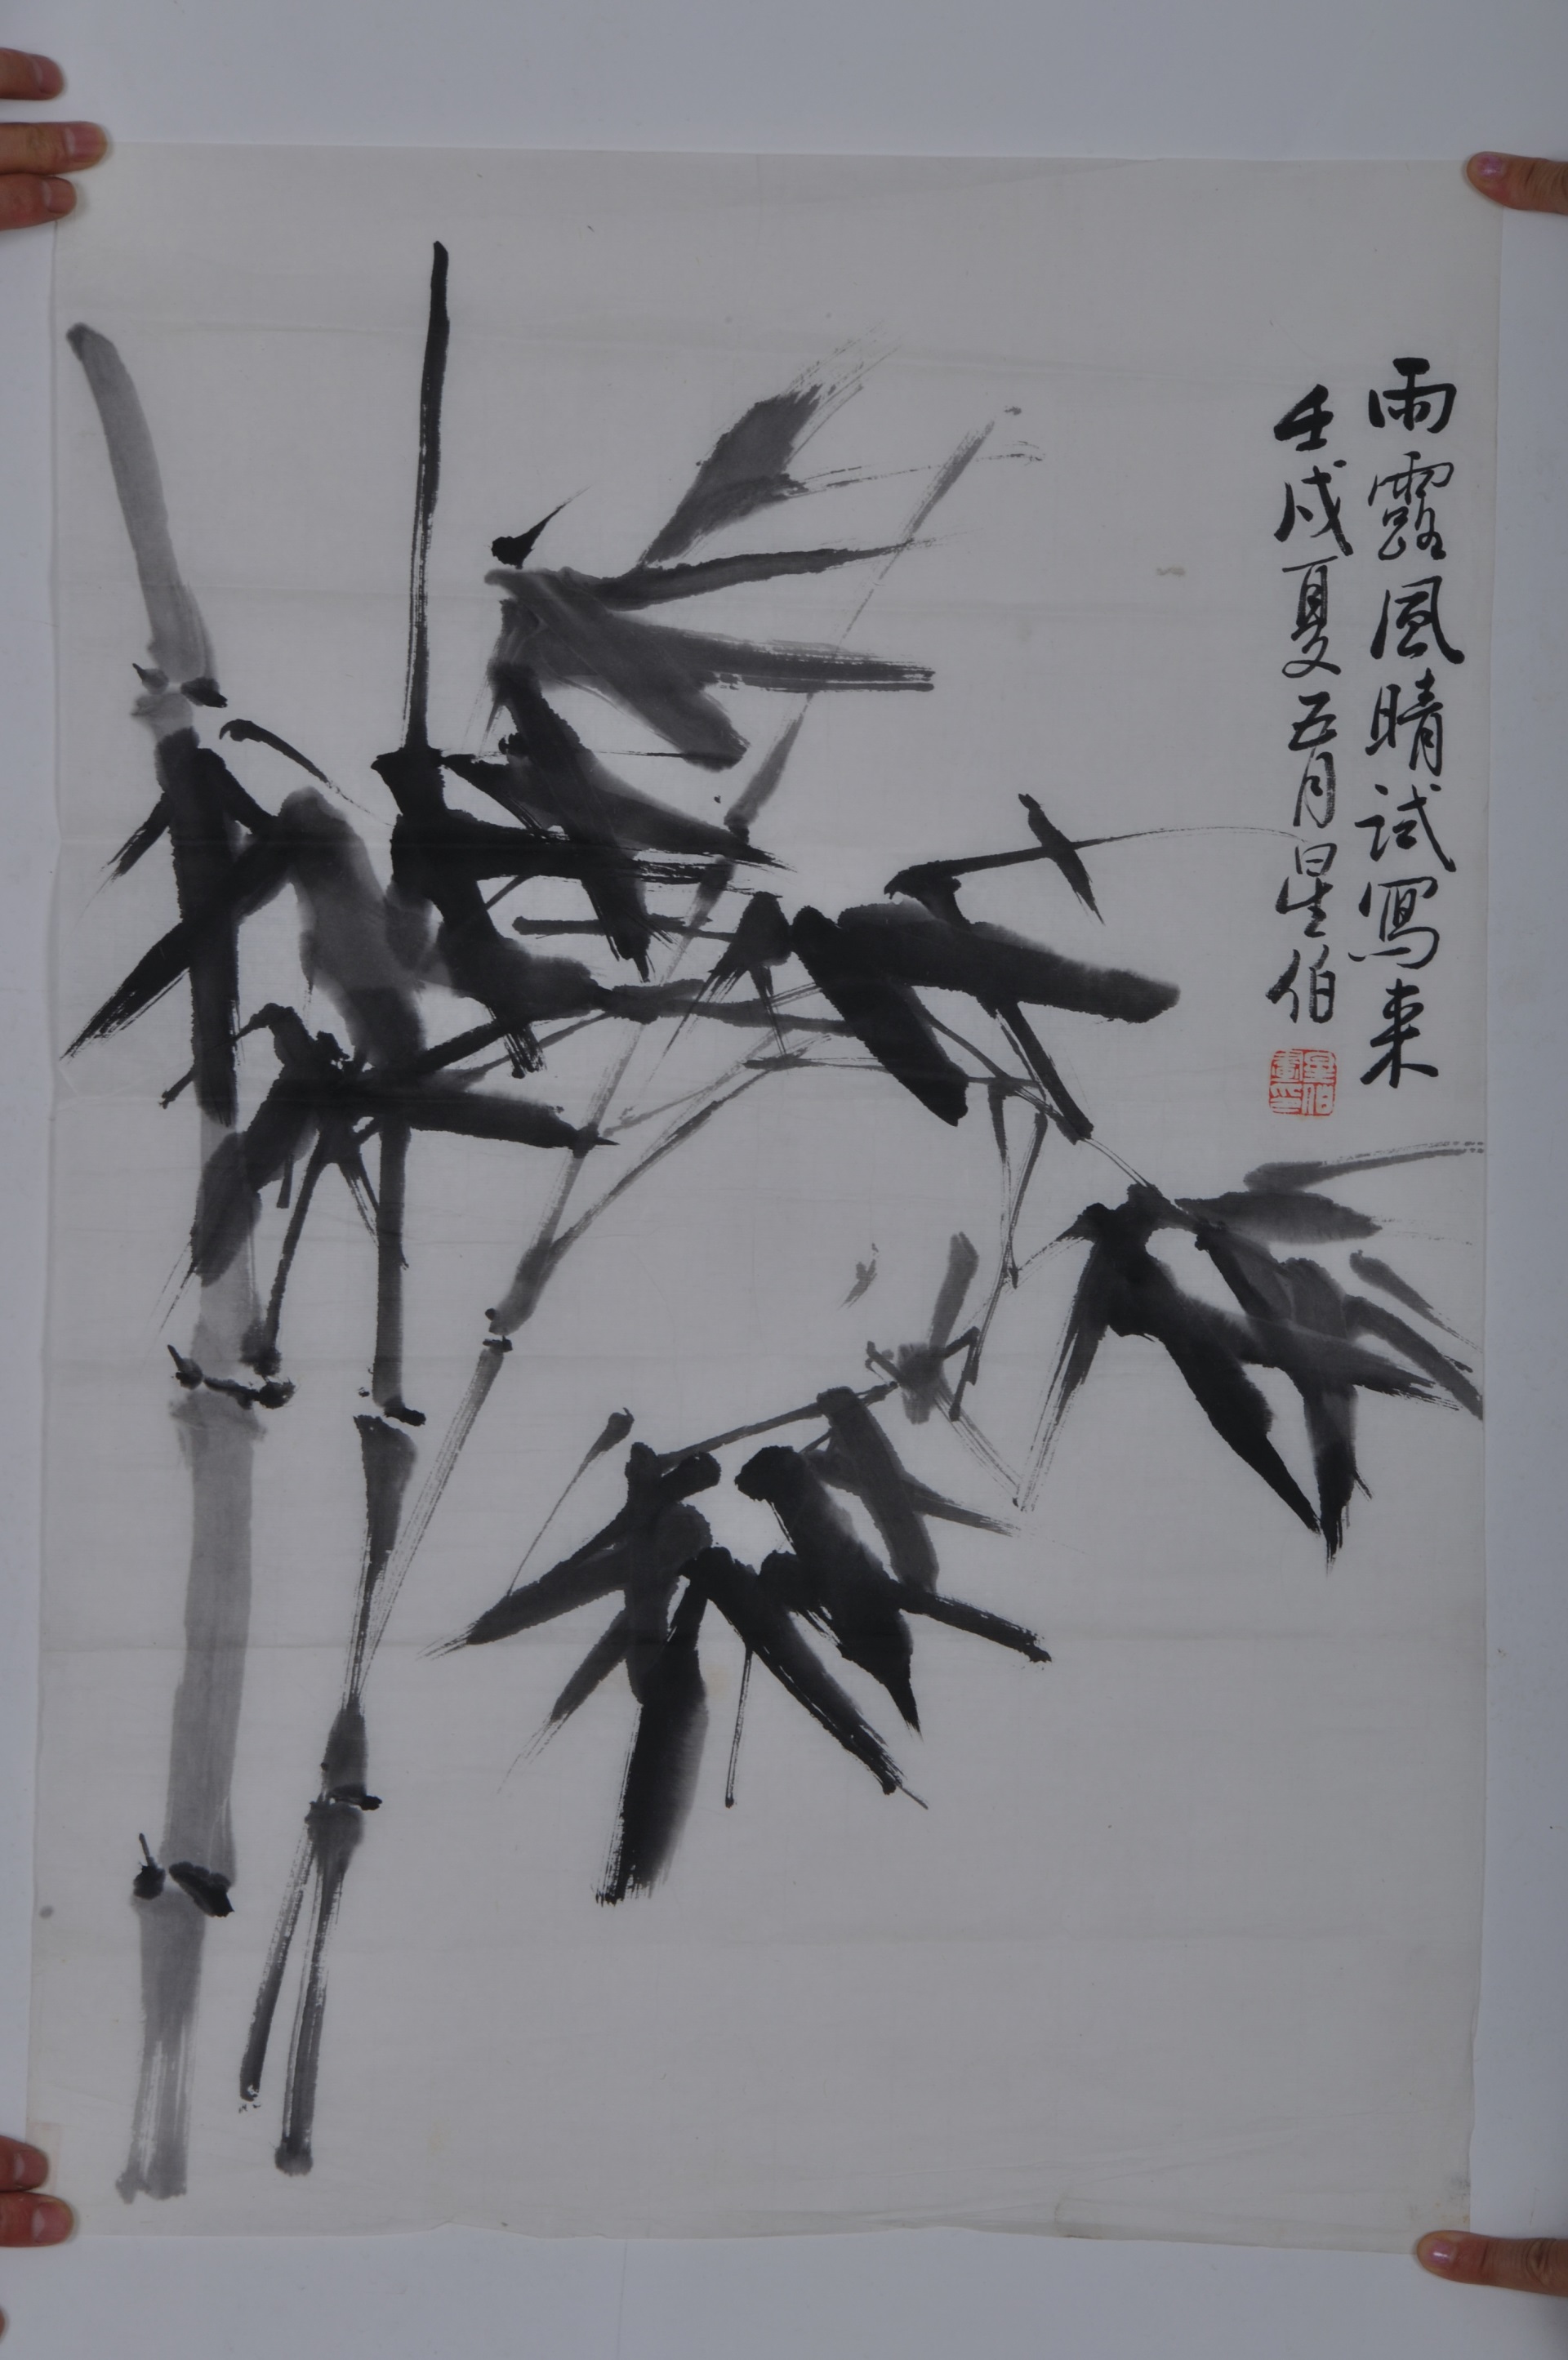 雨露風晴試寫来
壬戌夏五月星伯
星伯
畫印